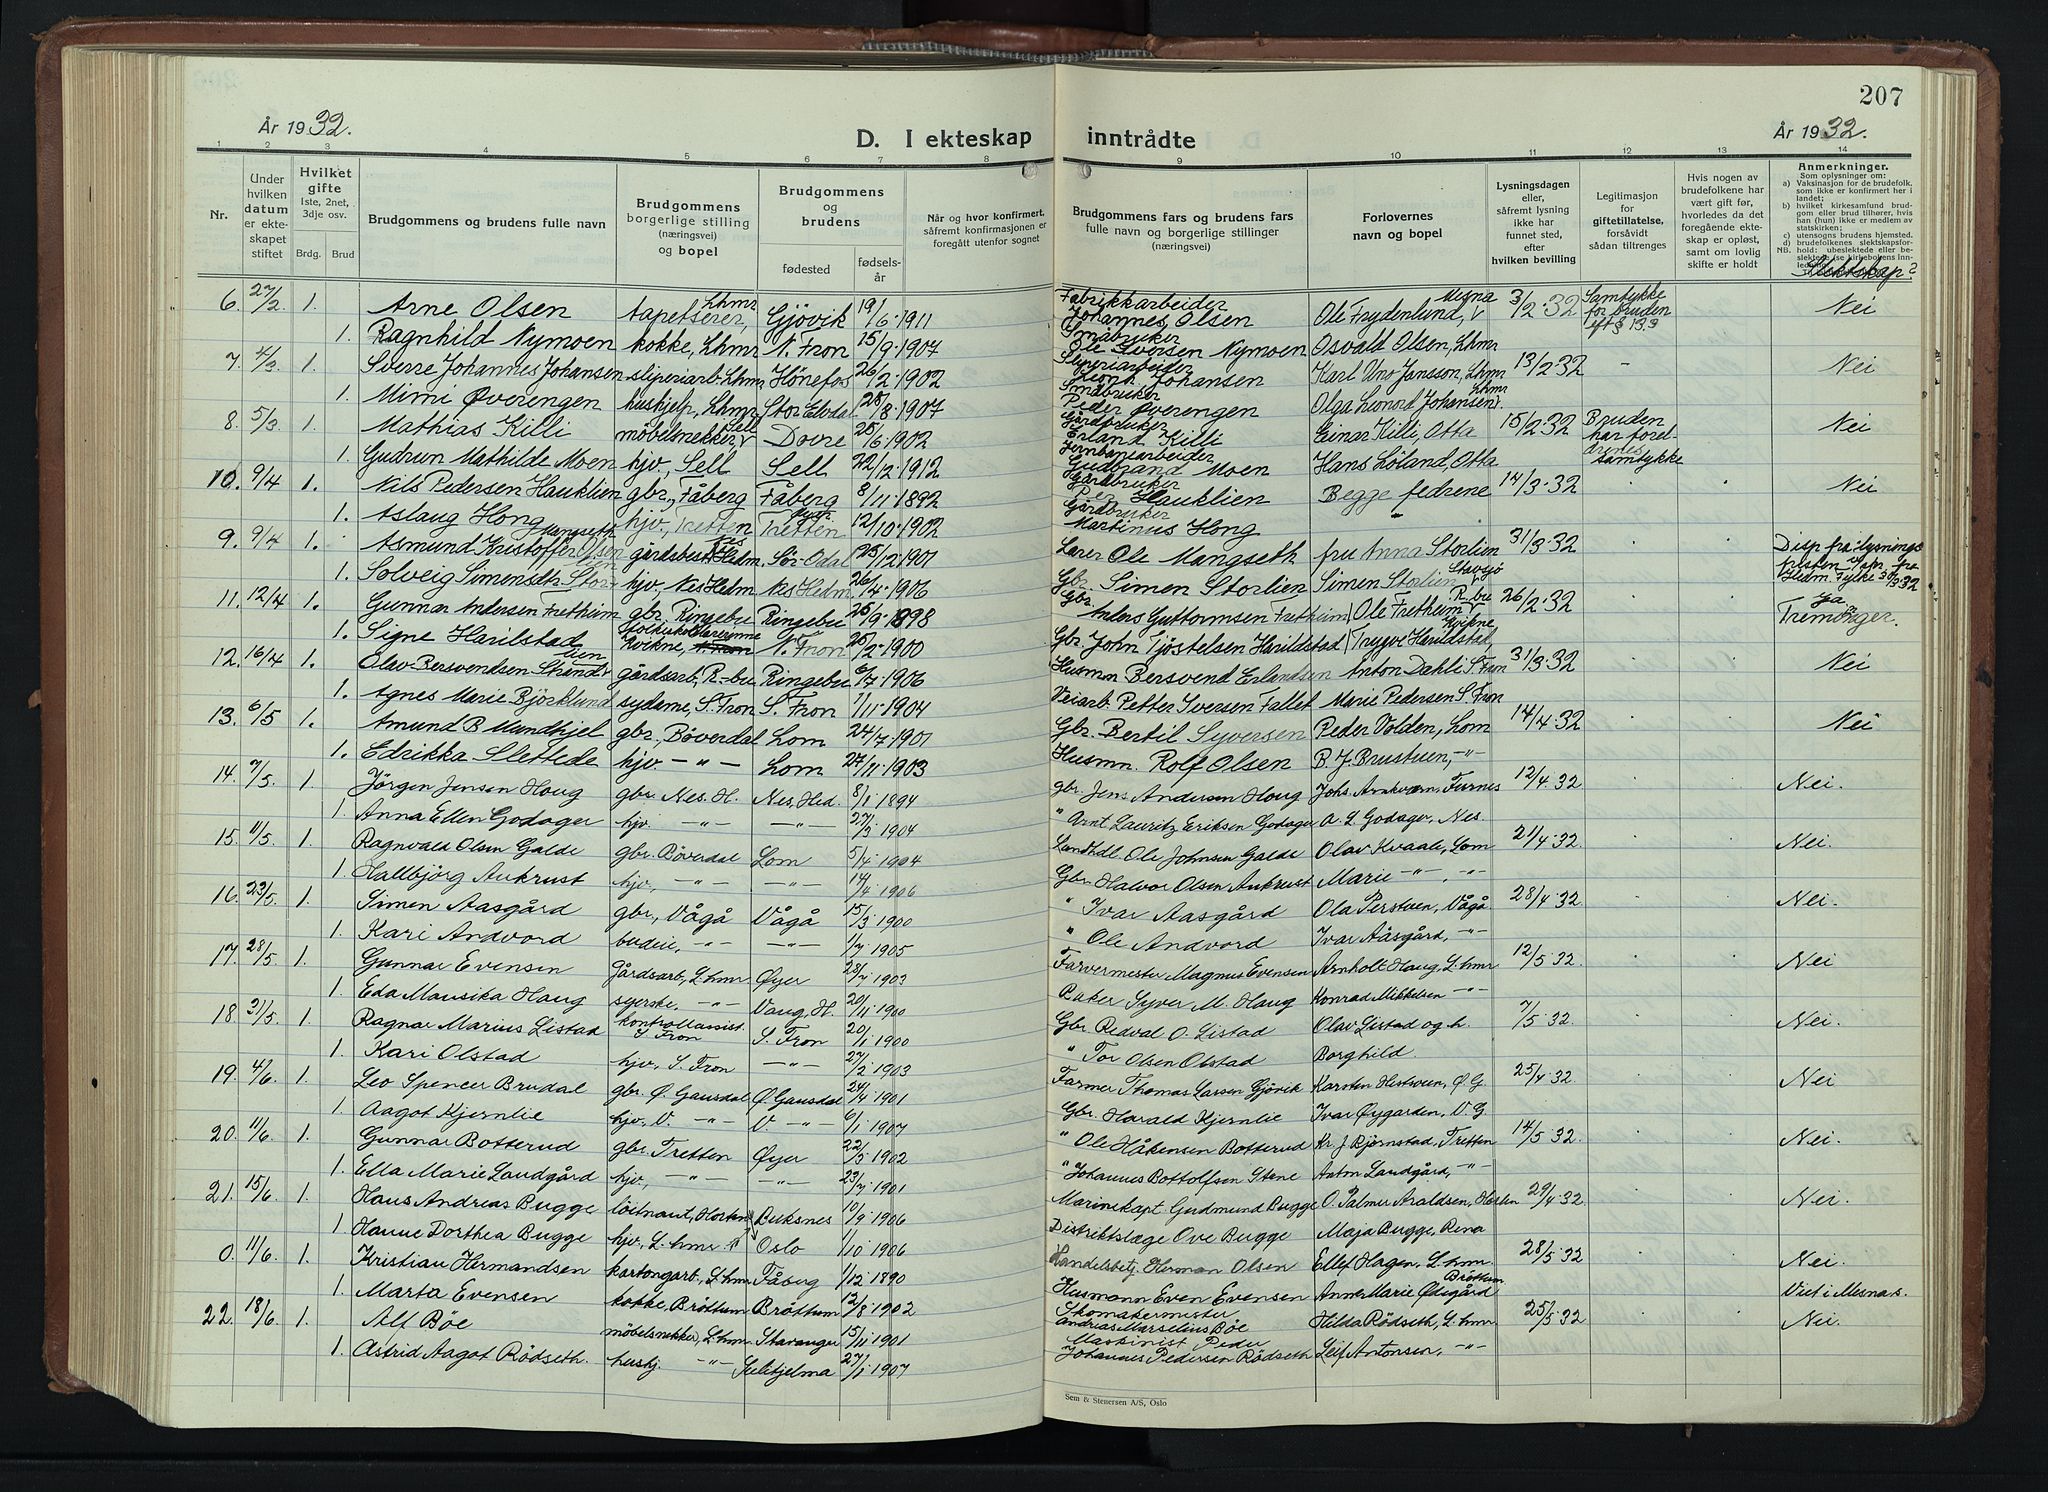 207
År 1932.
D. I ekteskap inntrådte
År 1932.
1 2 3 4 5 6 7 8 9 10 11 12 13 14
Nr.
Under hvilken datum er ekteskapet stiftet
Hvilket gifte 1ste, 2net, 3dje osv.
Brdg. Brud
Brudgommens og brudens fulle navn
Brudgommens borgerlige stilling (næringsvei) og bopel
Brudgommens og brudens
fødested
fødselsår
Når og hvor konfirmert, såfremt konfirmasjonen er foregått utenfor sognet
Brudgommens fars og brudens fars fulle navn og borgerlige stillinger (næringsvei)
Forlovernes navn og bopel
Lysningsdagen eller, såfremt lysning ikke har funnet sted, efter hvilken bevilling
Legitimasjon for giftetillatelse, forsåvidt sådan tiltrenges
Hvis nogen av brudefolkene har vært gift før, hvorledes da det foregående ekteskap er opløst, samt om lovlig skifte er holdt
Anmerkninger.
Som oplysninger om:
a) Vaksinasjon for de brudefolk, som ikke er konfirmert her i landet;
b) hvilket kirkesamfund brudgom eller brud tilhører, hvis han (hun) ikke er medlem av statskirken;
c) utensogns brudens hjemsted.
d) brudefolkenes slektskapsforhold:
Slektskap?
6. 27/2 1. Arne Olsen tapetserer, Lhmr Gjövik 19/6·1911 Fabrikkarbeider Johannes Olsen Ole Frydenlund, Mesna 3/2·32 Samtykke for bruden eft § 133 Nei
1. Ragnhild Nymoen kokke, Lhmr N. Fron 15/9·1907 Småbruker Ole Iversen Nymoen Osvald Olsen, Lhmr
7. 4/3 1. Sverre Johannes Johansen sliperiarb. Lhmr Hönefos 26/2·1902 Sliperiarbeider Johansen Karl Uno Jansson, Lhmr 13/2·32 - Nei
1. Mimi Överengen huskjelp, Lhmr Stor Elvdal 28/8·1907 Småbruker Peder Överengen Olga Leonord Johansen, Lhmr
8. 5/3 1. Mathias Killi möbelsnekker, Sell Dovre 25/6·1902 Gårdbruker Erland Killi Einar Killi, Otta 15/2·32 Bruden har foreldrenes samtykke Nei
1. Gudrun Mathilde Moen hjv., Sell Sell 22/12·1912 Jernbanearbeider Gudbrand Moen Hans Löland, Otta
10. 9/4 1. Nils Pedersen Hauklien gbr., Fåberg Fåberg 8/11·1892 Gårdbruker Per Hauklien Begge fedrene 14/3·32 Nei
1. Aslaug Hong hjv., Tretten Tretten 12/10·1902 Gårdbruker Martinus Hong
9. 9/4 1. Asmund Kristoffer Olsen Mangseth gårdsbest. Nes Hedm. Sör-Odal 25/12·1901 Lærer Ole Mangseth fru Anna Storlien 31/3·32 Disp fra lysnings fristen fra Hedm. Fylke 30/3 32
1. Solveig Simensdtr. Storlien hjv., Nes Hedm Nes Hedm 26/4·1906 Gbr. Simen Storlien Simen Storlien, Stavsjö
11. 12/4 1. Gunnar Andersen Fretheim gbr, Ringebu Ringebu 25/9·1898 Gbr. Anders Guttormsen Fretheim Ole Fretheim, R-bu 26/2·32 Ja Tremenger.
1. Signe Harildstad folkeskolelærerinne Kvikne, N. Fron 25/2·1900 Gbr. John Tjöstelsen Harildstad Trygve Harildstad, Kvikne
12. 16/4 1. Olav Bersvendsen Strandlien gårdsarb, R-bu Ringebu 6/7·1906 Husmn Bersvend Erlandsen Anton Dahli S. Fron 31/3·32 Nei
1. Agnes Marie Björklund syderne, S. Fron S. Fron 1/11·1904 Veiarb. Petter Iversen Fallet Marie Pedersen S. Fron
13. 6/5 1. Amund B Mundhjel gbr., Böverdal Lom 24/7·1901 Gbr. Bertil Syversen Peder Volden, Lom 14/4·32 Nei
1. Edrikka Slettede hjv. -"- Lom 27/11·1903 Husmn. Rolf Olsen B. J. Brustuen, -"-
14. 7/5 1. Jörgen Jensen Houg gbr. Nes. H. Nes, Hed. 8/1 1894 gbr. Jens Andersen Houg Johs. Arnkværn, Furnes 12/4·32 Nei.
1. Anna Ellen Godager hjv. -"- -"- 27/3 1904 " Arnt Lauritz Eriksen Godager A. L. Godager, Nes.
15. 11/5 1. Ragnvald Olsen Galde gbr. Böverdal Lom 5/7 1904 Landhdl. Ole Johnsen Galde Olav Kvaale, Lom 21/4·32 Nei.
1. Hallbjörg Aukrust hjv, -"- -"- 14/4 1906 Gbr Halvor Olsen Aukrust Marie -"-, -"-
16. 23/5. 1. Simen Aasgård gbr, Vågå Vågå 15/3 1900 " Ivar Aasgård Ola Perstuen, Vågå 28/4·32 Nei.
1. Kari Andvord budeie, -"- -"- 1/7 1905 " Ole Andvord Ivar Aasgård, -"-
17. 28/5. 1. Gunnar Evensen Gårdsarb, L.hmr Øyer 28/7 1903 Farvermester Magnus Evensen Arnholt Haug, L.hmr 12/5 32 Nei
1. Eda Mausika Haug syerske, -"- Vang, H. 20/11 1900 Baker Syver M. Haug Konrad Mikkelsen -"-
18. 31/5. 1. Ragnar Marius Listad kontrollassist. S. Fron S. Fron 20/1 1900 Gbr. Redvald O. Listad Olav Listad og h. 7/5·32. Nei.
1. Kari Olstad hjv, S. Fron -"- 27/2 1903 " Tor Olsen Olstad Borghild.
19. 4/6 1. Leo Spencer Brudal gbr. Ø. Gausdal Ø. Gausdal 24/4 1901 Farmer Thomas Larsen Gjövik Karsten Histveen, Ø. G. 25/4·32 Nei
1. Aagot Kjernlie hjv, V. -"- V -"- 6/1 1907 Gbr. Harald Kjernlie Ivar Øygarden, V. G.
20. 11/6. 1. Gunnar Botterud gbr. Tretten Øyer 22/5 1902 " Ole Håkensen Botterud Kr. J. Bjørnstad, Tretten 14/5·32. Nei.
1. Ella Marie Landgård hjv, -"- -"- 23/7 1901 " Johannes Bottolfsen Stene Antm Landgård, -"-
21. 15/6. 1. Hans Andreas Bugge löitnant, Horten Buksnes 10/9 1906 Marinekapt. Gudmund Bugge O. Palmer Araldsen, Horten 29/4·32 Nei.
1 Hanne Dorthea Bugge hjv, L.hmr Oslo 1/10 1906 Distriktslæge Ove Bugge Maja Bugge, Rena
0. 11/6. 1. Kristian Hermandsen kartongarb., L.hmr Fåberg 1/12 1890 Handelsbetj. Herman Olsen Ellef Hagen, L.hmr. 28/5·32 Nei.
1. Marta Evensen kokke Bröttum Bröttum 12/8 1902 Husmann Even Evensen Anne Marie Ødegård Bröttum Viet i Mesna k.
22. 18/6. 1. Alf Böe möbelsnekker, L.hmr Stavanger 15/11 1901 Skomakermester Andreas Marselius Böe Hilda Rödseth, L.hmr 25/5·32 Nei.
1. Astrid Aagot Rödseth. hushj. -"- Sulitjelma 27/1 1907 Maskinist Peder Johannes Pedersen Rödseth Leif Antonsen, -"-
Sem & Stenersen A/S, Oslo